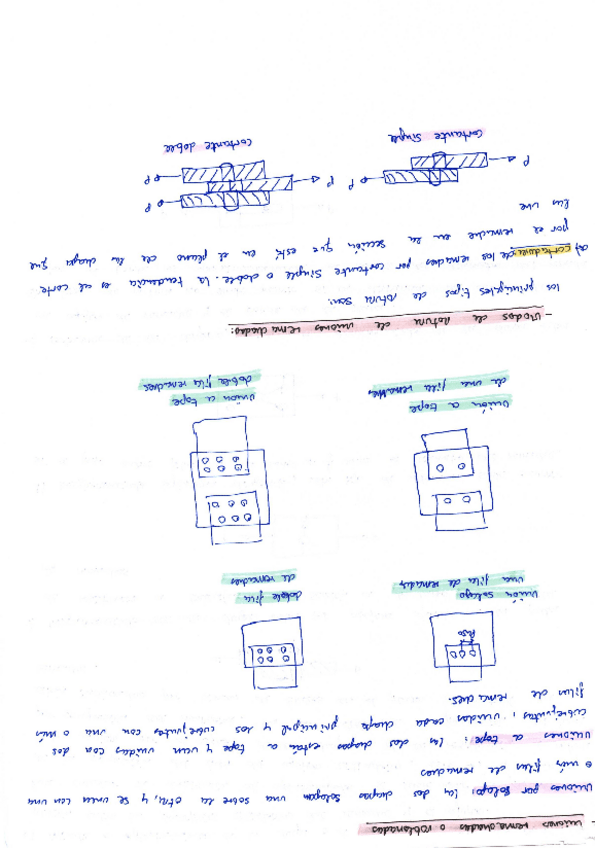 - Uniones remachadas o roblonadas
Uniones por solapo: las dos chapas solapan una sobre la otra, y se unen con una
o más filas de remaches
Uniones a tope: las dos chapas están a tope y van unidas con dos
cubrejuntas, unidas cada chapa principal y los cubrejuntas con una o más
filas de remaches.
Paso
Unión solapo
una fila de remaches
doble fila
de remaches
Unión a tope
de una fila remaches
Unión a tope
doble fila remaches
- Modos de rotura de uniones remachadas:
los principales tipos de rotura son.
a) cortadura de los remaches por cortante simple o doble. la tendencia es al corte
por el remache en la sección que está en el plano de la chapa que
las une
P
P
P
P
P
cortante simple
cortante doble